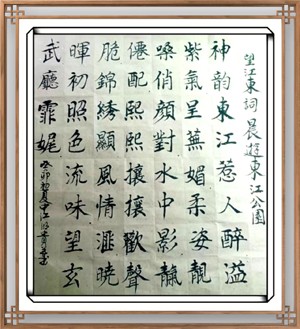 望江東詞 晨遊東江公園
神韵東江惹人醉溢
紫氣呈蕪媚柔姿靚
嗓俏顔對水中影
僊配熙熙攘攘歡聲
脆錦綉顯風情滙曉
暉初照色流味望玄
武廳霏娓
癸卯初夏中江